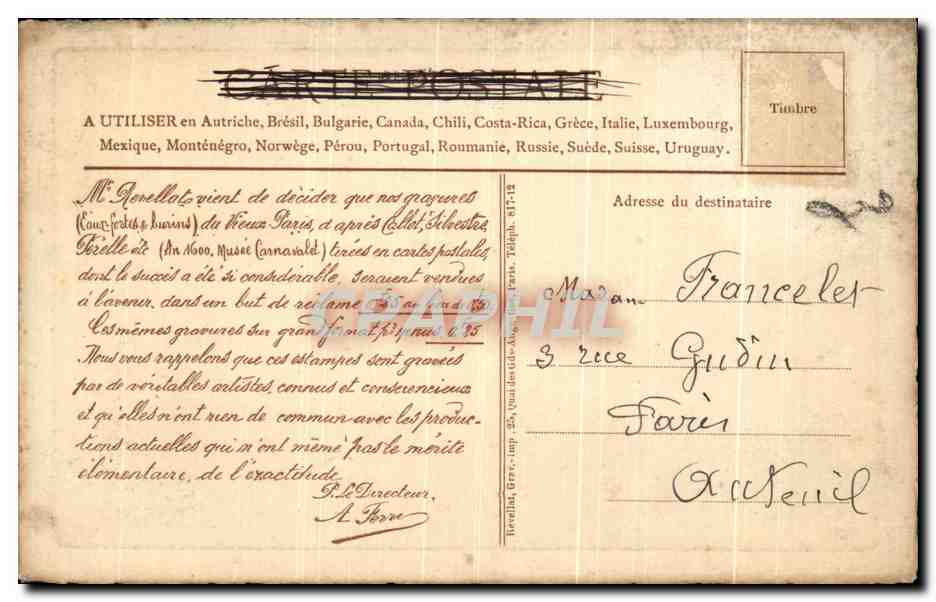 CARTE POSTALE
A UTILISER en Autriche, Brésil, Bulgarie, Canada, Chili, Costa-Rica, Grèce, Italie, Luxembourg,
Mexique, Monténégro, Norwège, Pérou, Portugal, Roumanie, Russie, Suède, Suisse, Uruguay.
Timbre
Mr Revellat vient de décider que nos gravures
(Eaux fortes & burins) du Vieux Paris, d'après Callot, Silvestre,
Pérelle etc (An 1600, Musée Carnavalet) tirées en cartes postales,
dont le succès a été si considérable, seraient vendues
à l'avenir, dans un but de réclame
Les mêmes gravures sur grand format
Nous vous rappelons que ces estampes sont gravées
par de véritables artistes, connus et consciencieux
et qu'elles n'ont rien de commun avec les produc-
tions actuelles qui n'ont même pas le mérite
élémentaire, de l'exactitude
P. Le Directeur,
Révellat, Grav.-Imp. 25, Quai des Gds-Aug. Paris. Téléph. 817-12
Adresse du destinataire
Madame Francelet
3 rue Gudin
Paris
Auteuil
CPAPHIL